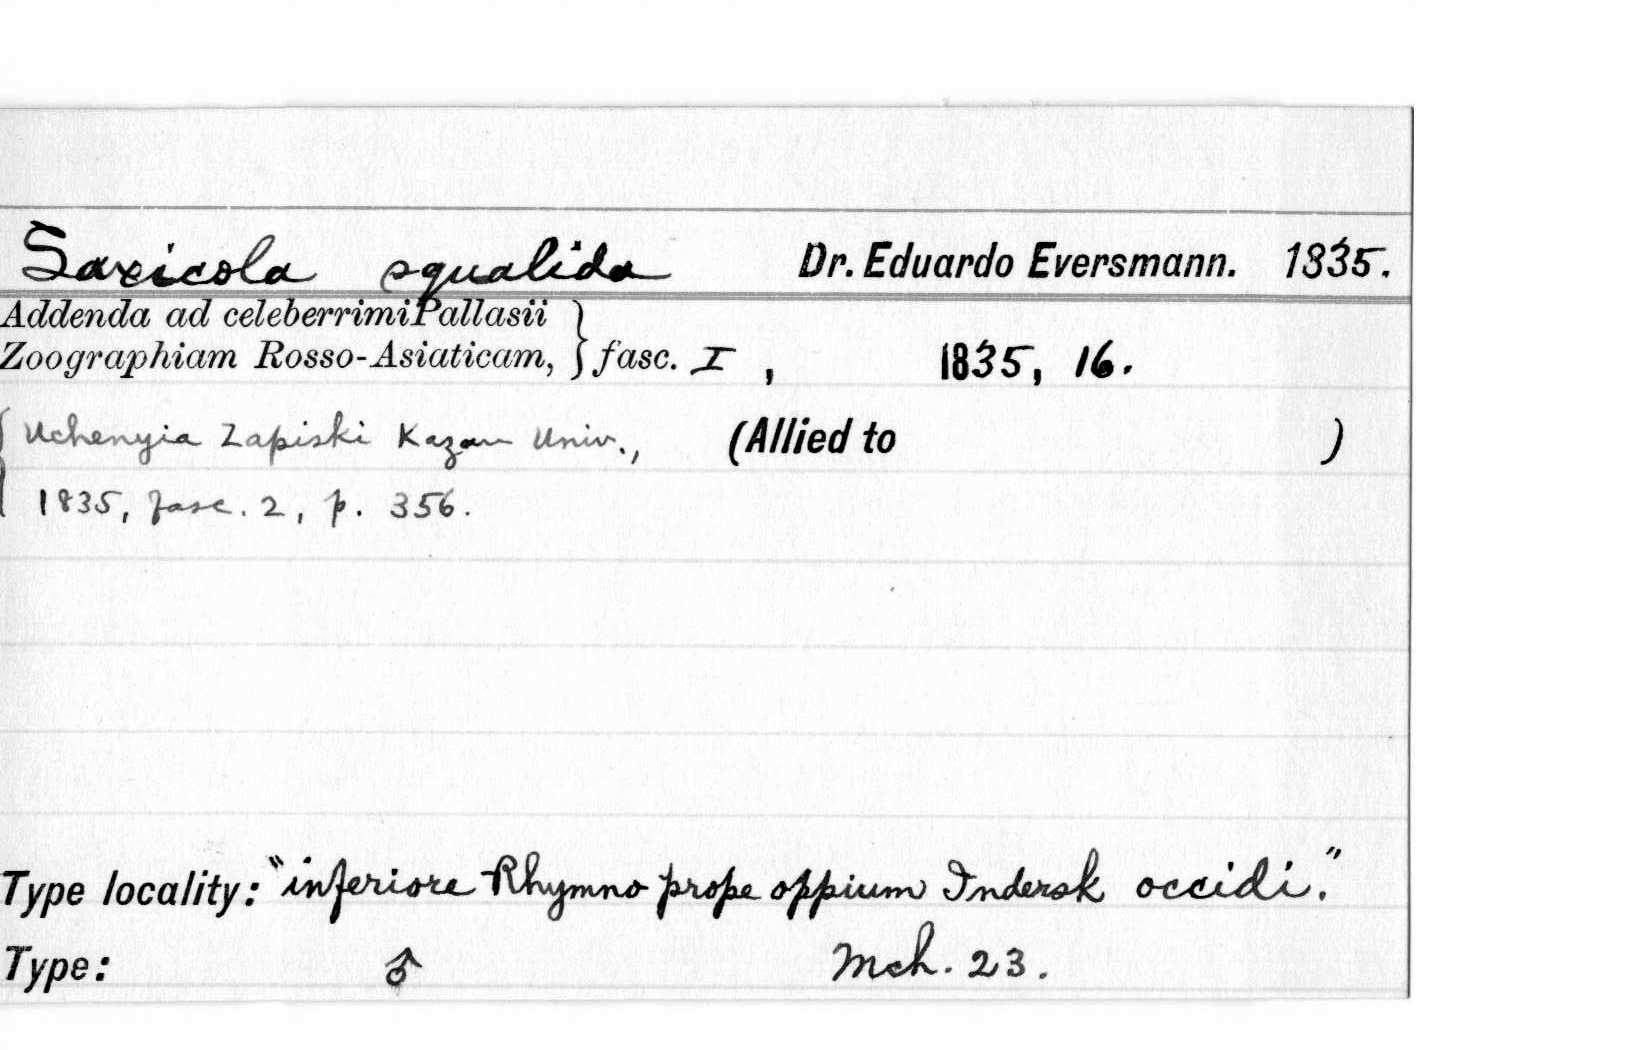 Saxicola squalida Dr. Eduardo Eversmann. 1835.
Addenda ad celeberrimi Pallasii
Zoographiam Rosso-Asiaticam, } fasc. I, 1835, 16.
{ Uchenyia Zapiski Kazan Univ., (Allied to )
1835, fasc. 2, p. 356.
Type locality: "inferiore Rhymno prope oppium Indersk occidi."
Type: ♂ Mch. 23.